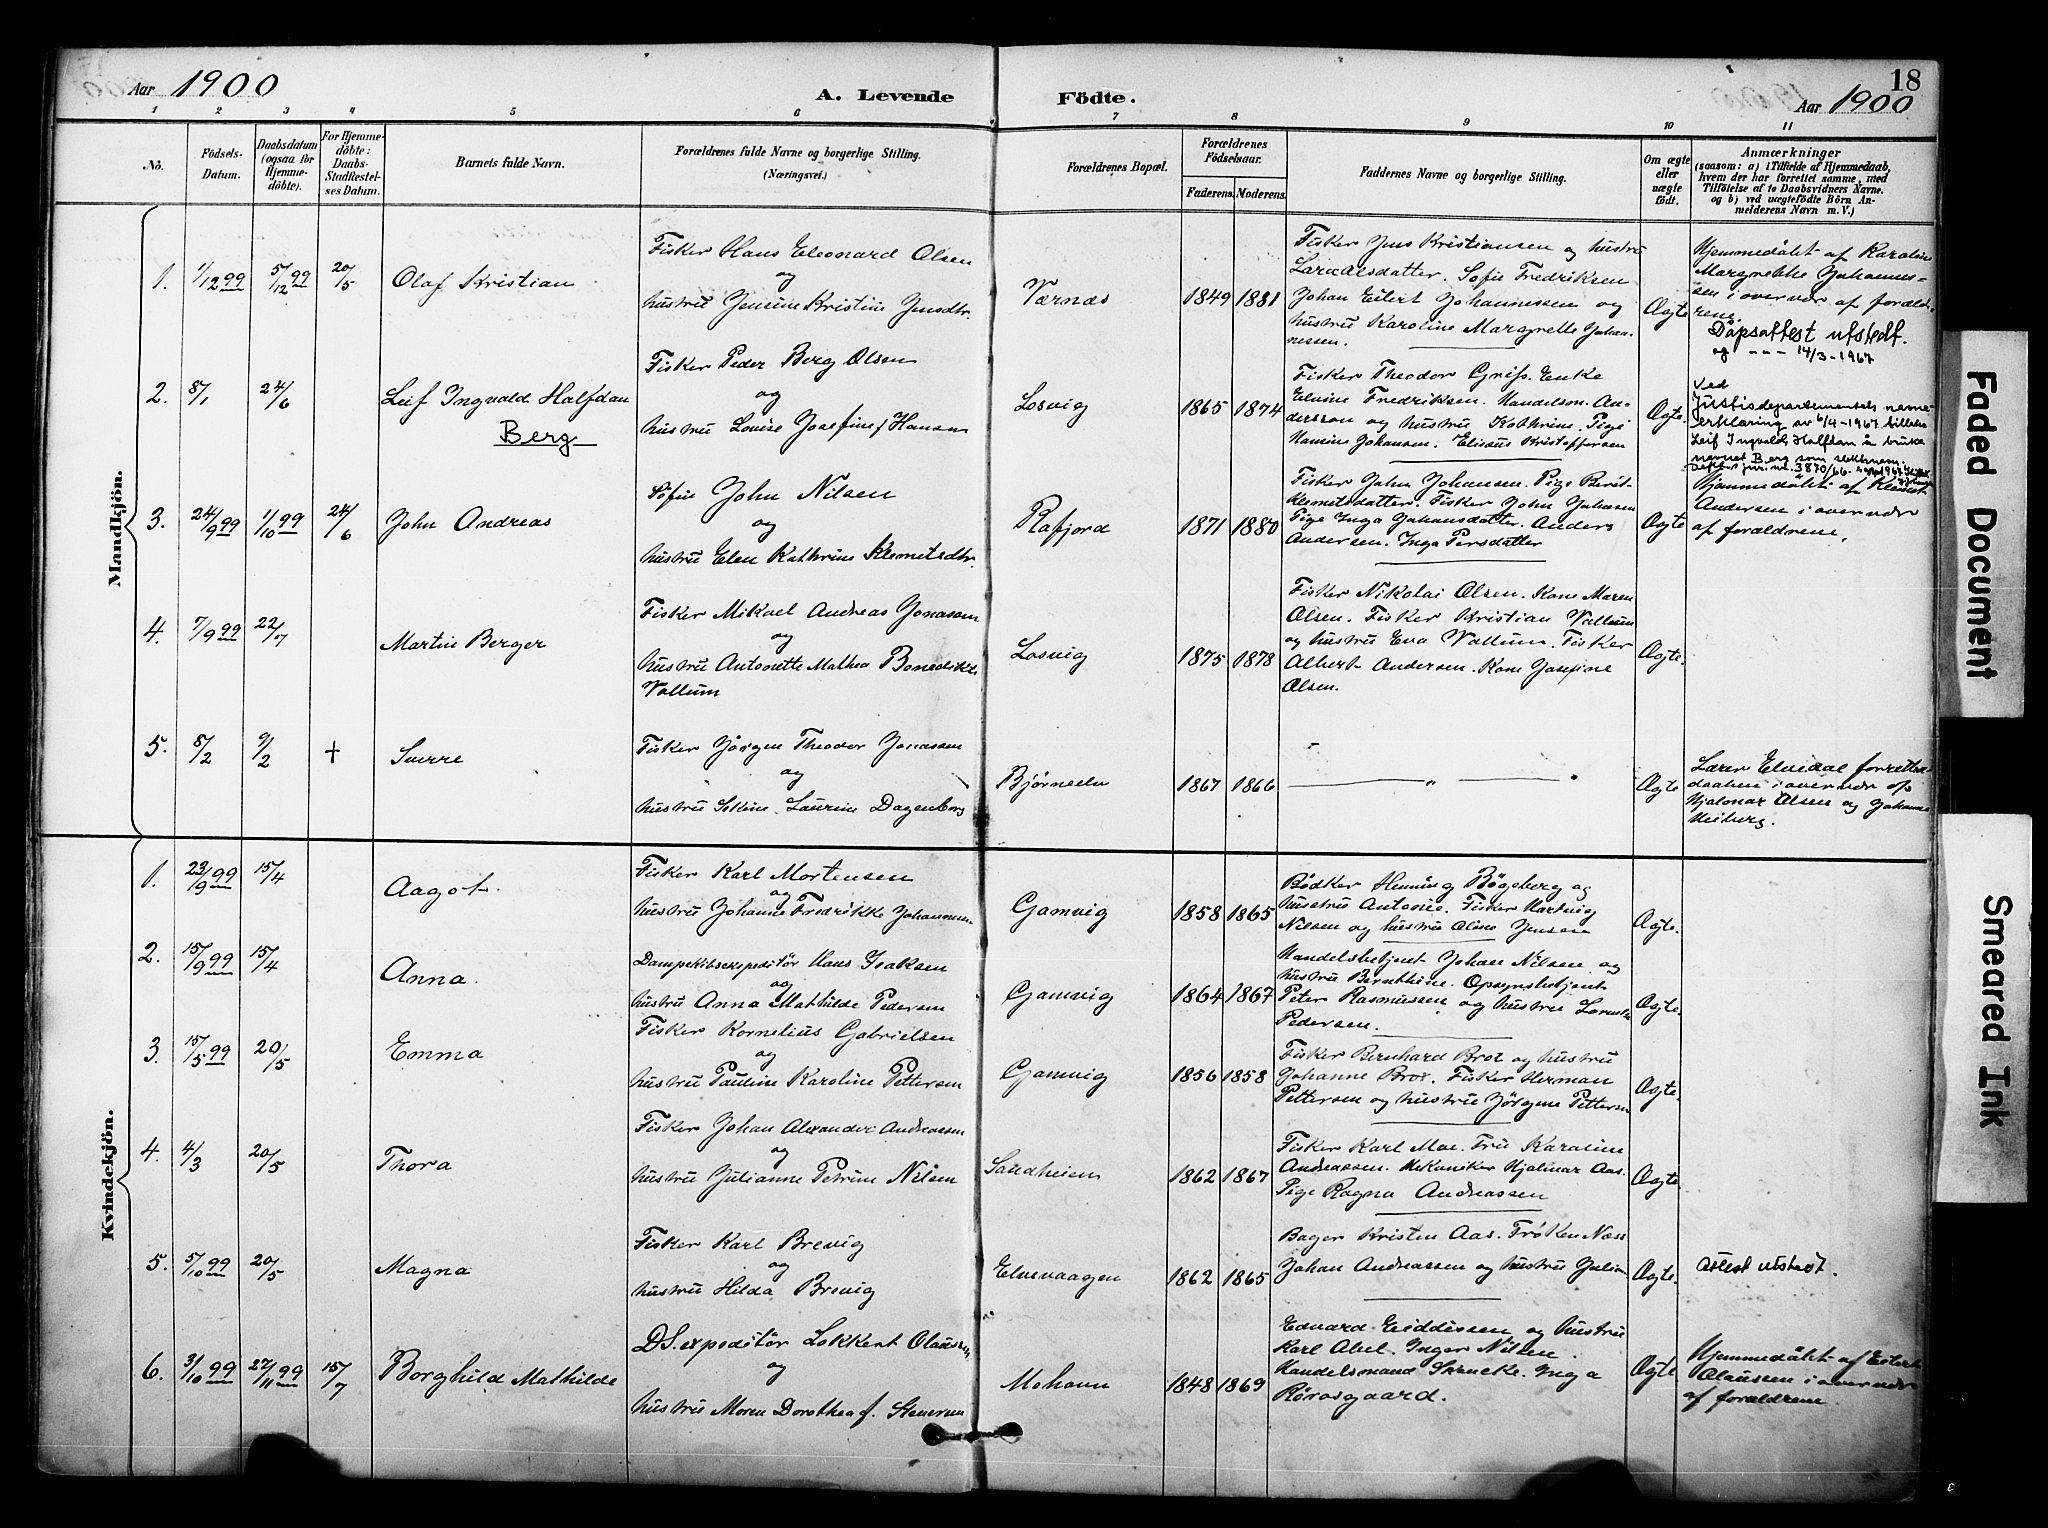 18
Aar 1900
A. Levende Födte.
Aar 1900
1 2 3 4 5 6 7 8 9 10 11
No.
Födsels-Datum.
Daabsdatum (ogsaa for Hjemme-döbte).
For Hjemme-döbte: Daabs-Stadfæstel-ses Datum.
Barnets fulde Navn.
Forældrenes fulde Navne og borgerlige Stilling.
(Næringsvei.)
Forældrenes Bopæl.
Forældrenes Födselsaar.
Faderens. Moderens.
Faddernes Navne og borgerlige Stilling.
Om ægte eller uægte födt.
Anmærkninger
(saasom: a) i Tilfælde af Hjemmedaab,
hvem der har forrettet samme, med
Tilföielse af to Daabsvidners Navne.
og b) ved uægtefödte Börn An-
melderens Navn m. V.)
Mandkjön.
1. 1/12 99 5/12 99 20/5 Olaf Kristian
Fisker Hans Eleonard Olsen
og
hustru Jensine Kristine Jensdtr.
Værnæs 1849 1881
Fisker Jens Kristiansen og hustru
Lara Olsdatter. Sofie Fredriksen
Johan Eilert Johannessen og
hustru Karoline Margrette Johan-
nessen.
Ægte
Hjemmedøbt af Karoline
Margrethe Johannes-
sen i overvær af foræld-
rene.
Dåpsattest utstedt.
og --- 14/3-1967
2. 8/1 24/6 Leif Ingvald Halfdan
Berg
Fisker Peder Berg Olsen
og
hustru Louise Josefine f Hansen
Losvig 1865 1874
Fisker Theodor Griff. Enke
Elvine Fredriksen. Handelsm. An-
dersson og hustru Kathrine. Pige
Hansine Johansen. Eliseus Kristoffersen
Ægte.
Ved
Justisdepartementets navne-
erklæring av 6/4-1967 tillates
Leif Ingvald Halfdan å bruke
navnet Berg som slektsnavn.
3. 24/9 99 1/10 99 24/6 John Andreas
Søfin John Nilsen
og
hustru Elen Kathrine Klemetsdtr.
Rafjord 1871 1880
Fisker John Johansen. Pige Berit
Klemetsdatter. Fisker John Johansen
Pige Inga Johansdatter. Anders
Andersen. Inga Persdatter
Ægte
Hjemmedøbt af Klemet
Andersen i overvær
af forældrene.
4. 7/9 99 22/7 Martin Berger
Fisker Mikael Andreas Jonassen
og
hustru Antonette Mathea Benedikte
Vallum
Losvig 1875 1878
Fisker Nikolai Olsen. Kone Maren
Olsen. Fisker Kristian Vallum
og hustru Eva Vallum. Fisker
Albert Andersen. Kone Josefine
Olsen.
Ægte.
5. 8/2 9/2 † Sverre
Fisker Jørgen Theodor Jonassen
og
hustru Sekine Laurine Dagenborg
Bjørnelv 1867 1866
— " — "
Ægte
Lærer Elvedal forrettede
daaben i overvær af
Hjalmar Olsen og Johannes
Heiberg.
Kvindekjön.
1. 23/9 99 15/4 Aagot.
Fisker Karl Mortensen
og
hustru Johanne Fredrikke Johannesen
Gamvig 1858 1865
Bødker Henning Bøgeberg og
hustru Antonie. Fisker Hartvig
Nilsen og hustru Oline Jensen
Ægte.
2. 15/9 99 15/4 Anna.
Dampskibsexpeditør Hans Isaksen
og
hustru Anna Mathilde Pedersen
Gamvig 1864 1867
Handelsbetjent Johan Nilsen og
hustru Bernthine. Opsynsbetjent
Peter Rasmussen og hustru Lorentse
Pedersen.
Ægte.
3. 15/5 99 20/5 Emma
Fisker Kornelius Gabrielsen
og
hustru Pauline Karoline Pettersen
Gamvig 1856 1858
Fisker Bernhard Brox og hustru
Johanne Brox. Fisker Herman
Pettersen og hustru Jørgine Pettersen
Ægte.
4. 4/3 20/5 Thora
Fisker Johan Alexander Andreassen
og
hustru Julianne Petrine Nilsen
Sandheien 1862 1867
Fisker Karl Moe. Fru Karoline
Andreassen. Mekaniker Hjalmar Aas.
Pige Ragna Andreassen
Ægte
5. 5/10 99 20/5 Magna
Fisker Karl Brevig
og
hustru Hilda Brevig
Elvevaagen 1862 1865
Bager Kristen Aas. Frøken Næss
Johan Andreassen og hustru Julian
Ægte.
Attest utstedt.
6. 3/10 99 27/11 99 15/7 Borghild Mathilde
D.S. expeditør Lokkert Olaussen
og
hustru Maren Dorothea f. Stenersen
Mehavn 1848 1869
Edvard Eiddissen og hustru
Karl Abel. Inger Nilsen.
Handelsmand Svencke. Inga
Rørosgaard.
Ægte
Hjemmedøbt af Eilert
Claussen i overvær
af forældrene.
Faded Document
Smeared Ink